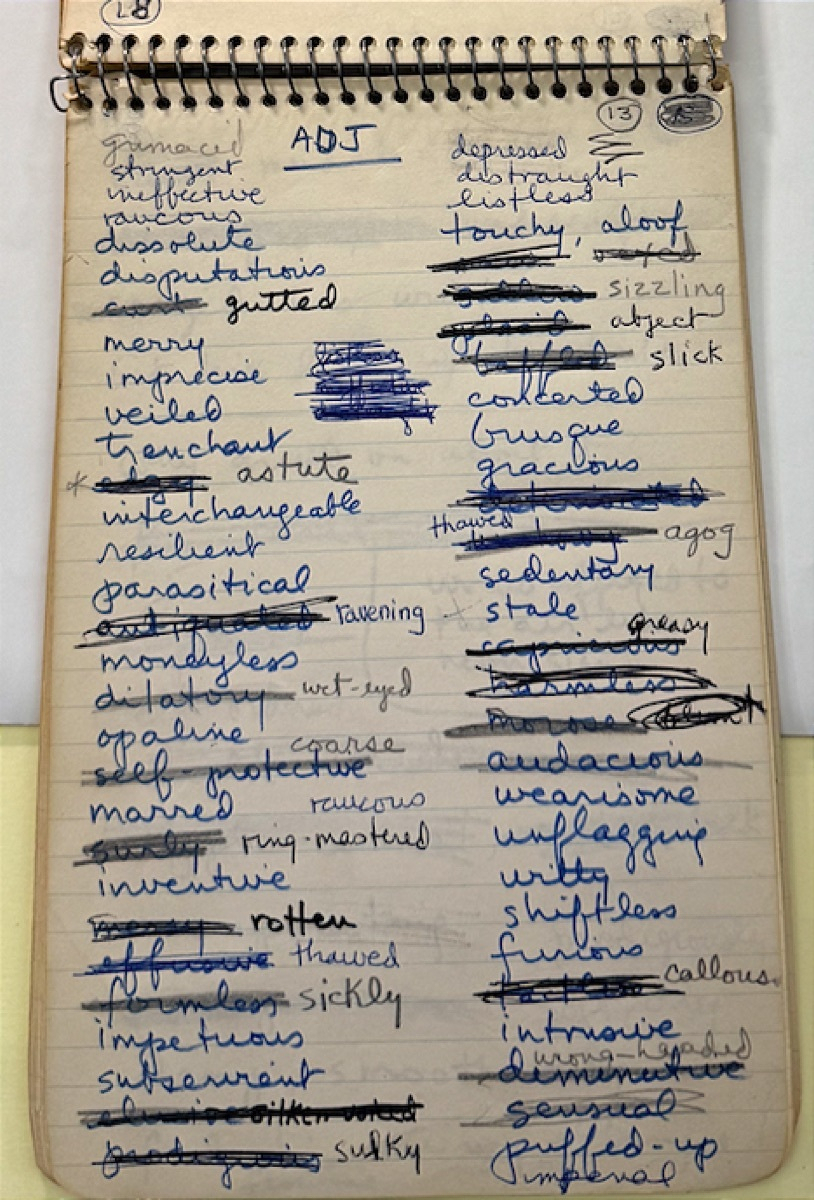 18
13
15
ADJ
grimaced
stringent
ineffective
raucous
dissolute
disputatious
curt gutted
merry
imprecise
veiled
trenchant
* edgy astute
interchangeable
resilient
parasitical
antiquated ravening
moneyless
dilatory wet-eyed
opaline
coarse
self-protective
marred raucous
surly ring-mastered
inventive
messy rotten
effusive thawed
formless sickly
impetuous
subservient
elusive silken-voiced
prodigious sulky
depressed
distraught
listless
touchy, aloof
vexed
sizzling
abject
baffled slick
concerted
brusque
gracious
determined
thawed agog
sedentary
stale
greasy
capricious
harmless
morose blunt
audacious
wearisome
unflagging
witty
shiftless
furious
tactless callous
intrusive
wrong-headed
diminutive
sensual
puffed-up
imperial